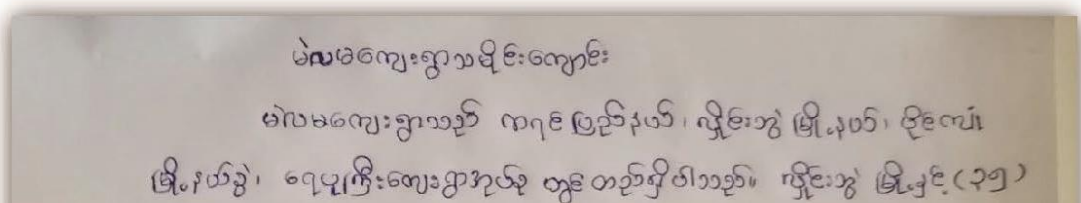 မဲလမကျေးရွာသမိုင်းကျောင်း
မဲလမကျေးရွာသည် ကရင်ပြည်နယ်၊ လှိုင်းဘွဲ့မြို့နယ်၊ ပိုင်ကျုံ
မြို့နယ်ခွဲ၊ ရေပူကြီးကျေးရွာအုပ်စု တွင် တည်ရှိပါသည်။ လှိုင်းဘွဲ့ မြို့နှင့် (၃၅)